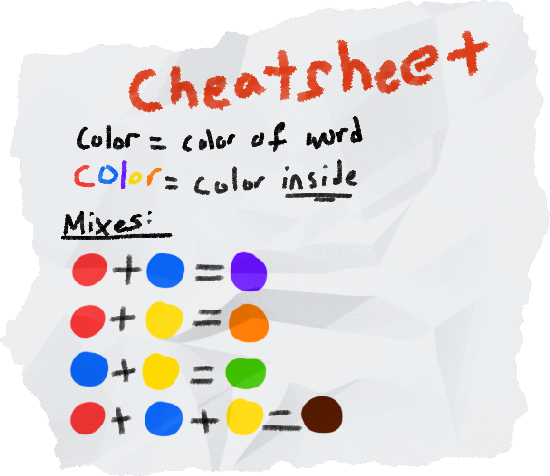 Cheatsheet
Color = color of word
Color = color inside
Mixes:
+ =
+ =
+ =
+ + =